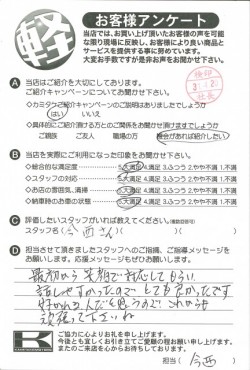 軽
お客様アンケート
当店では、お買い上げ頂いたお客様の声を可能
な限り現場に反映し、お客様により良い商品と
サービスを提供する事に努めています。
大変お手数ですが是非お声をお聞かせ下さい。
A 当店はご紹介を大切にしております。
ご紹介キャンペーンについてお聞かせ下さい。
◇カエタケご紹介キャンペーンのご説明はありましたでしょうか
はい いいえ
◇具体的にご紹介頂ける方とのご関係をお聞かせ頂けますでしょうか
ご親族 ご友人 職場の方 機会があれば紹介したい
B 当店を実際にご利用になった印象をお聞かせ下さい。
◇総合的な満足度 5.大満足 4.満足 3.ふつう 2.やや不満 1.不満
◇スタッフの対応 5.大満足 4.満足 3.ふつう 2.やや不満 1.不満
◇お店の雰囲気、清掃 5.大満足 4.満足 3.ふつう 2.やや不満 1.不満
◇納車時のお車の状態 5.大満足 4.満足 3.ふつう 2.やや不満 1.不満
C 評価したいスタッフがいれば教えてください。(複数回答可)
スタッフ名(今西さん)
D 担当させて頂きましたスタッフへのご指摘、ご指導メッセージをお
願いします。応援メッセージもぜひお聞かせ下さい。
最初から笑顔で対応してもらい
話しやすかったのでとても良かったです
好かれる人だと思うのでこれからも
頑張って下さいね
K
ご協力に心よりお礼を申し上げます。
今後とも宜しくお引き立てご愛顧の程お願い申し上げます。
またのご来店を心からお待ちしております。
担当(今西)